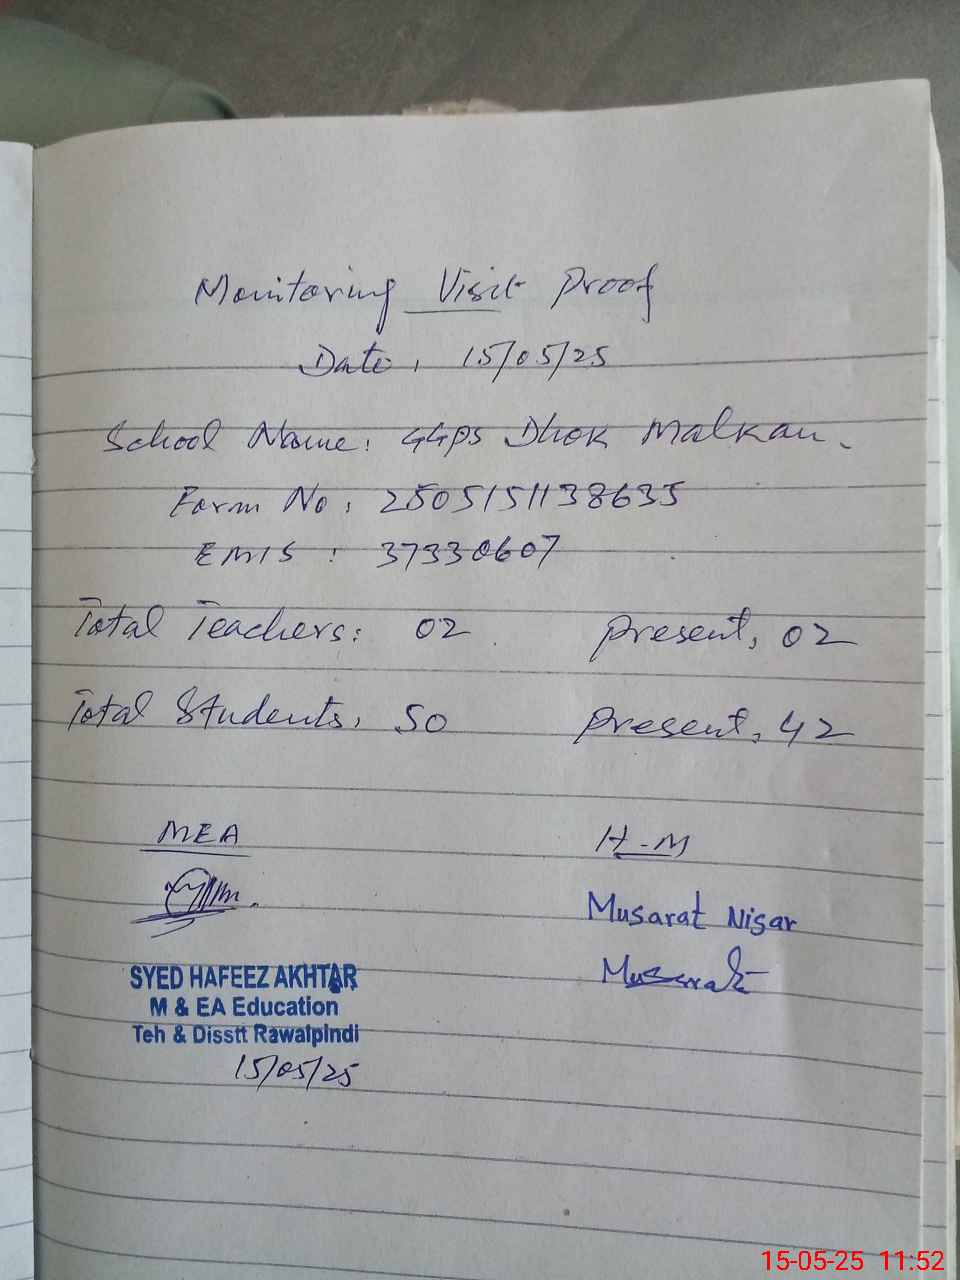 Monitoring Visit Proof
Date: 15/05/25
School Name: GGPS Dhok Malkan.
Form No: 2505151138635
EMIS: 37330607
Total Teachers: 02 Present: 02
Total Students: 50 Present: 42
MEA H-M
Musarat Nisar
Musarrat
SYED HAFEEZ AKHTAR
M & EA Education
Teh & Disstt Rawalpindi
15/05/25
15-05-25 11:52